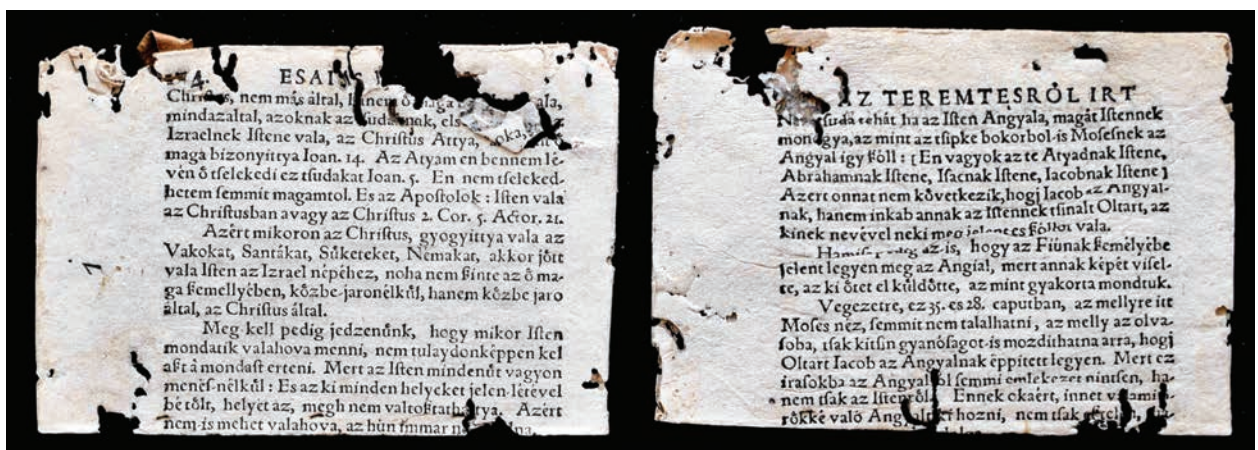 ESAIAS
Christus, nem más által, hanem ô maga ala,
mindazaltal, azoknak az tsudaknak, els
Izraelnek Istene vala, az Christus Attya, oka,
maga bizonyittya Ioan. 14. Az Atyam en bennem lé-
vén ô tselekedi ez tsudakat Ioan. 5. En nem tseleked-
hetem semmit magamtol. Es az Apostolok : Isten vala
az Christusban avagy az Christus 2. Cor. 5. Actor. 21.
Azért mikoron az Christus, gyogyittya vala az
Vakokat, Santákat, Sûketeket, Némakat, akkor jôtt
vala Isten az Izrael népéhez, noha nem ßinte az ô ma-
ga ßemellyében, kôzbe-jaronélkûl, hanem kôzbe jaro
által, az Christus által.
Meg kell pedig jedzenûnk, hogy mikor Isten
mondatik valahova menni, nem tulaydonkêppen kel
aßt â mondast erteni. Mert az Isten mindenût vagyon
menês-nélkûl : Es az ki minden helyeket jelen-létével
bé tôlt, helyét az, megh nem valtoßtathattya. Azért
nem-is mehet valahova, az hûn immar
AZ TEREMTESRÔL IRT
Nem tsuda tehát ha az Isten Angyala, magát Istennek
mondgya, az mint az tsipke bokorbol-is Mosesnek az
Angyal így ßóll : [En vagyok az te Atyadnak Istene,
Abrahamnak Istene, Isacnak Istene, Iacobnak Istene]
Azert onnat nem kôvetkezik, hogj Iacob az Angyal-
nak, hanem inkab annak az Istennek tsinalt Oltart, az
kinek nevével neki meg jelent es ßóllot vala.
Hamis pedig az-is, hogy az Fiûnak ßemélyébe
jelent legyen meg az Angial, mert annak képét visel-
te, az ki ôtet el kûldôtte, az mint gyakorta mondtuk.
Vegezetre, ez 35. es 28. caputban, az mellyre itt
Moses néz, semmit nem talalhatni, az melly az olva-
soba, tsak kitsin gyanôsagot-is mozdithatna arra, hogj
Oltart Iacob az Angyalnak êppitett legyen. Mert ez
irasokba az Angyalról semmi emlekezet nintsen, ha-
nem tsak az Istenrôl. Ennek okaért, innet valamin
rôkké valô Angyalt ki hozni, nem tsak